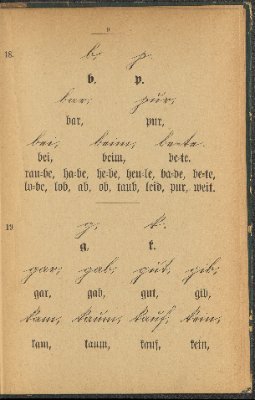 9
18.
b, p.
b. p.
bar, pür,
bar, pur,
bei, beim, be=te.
bei, beim, be=te.
rau=be, ha=be, he=be, heu=le, ba=de, be=te,
lo=be, lob, ab, ob, taub, leid, pur, weit.
19
g, k.
g, k.
gar, gab, gut, gib,
gar, gab, gut, gib,
kam, kaum, kauf, kein,
kam, kaum, kauf, kein,